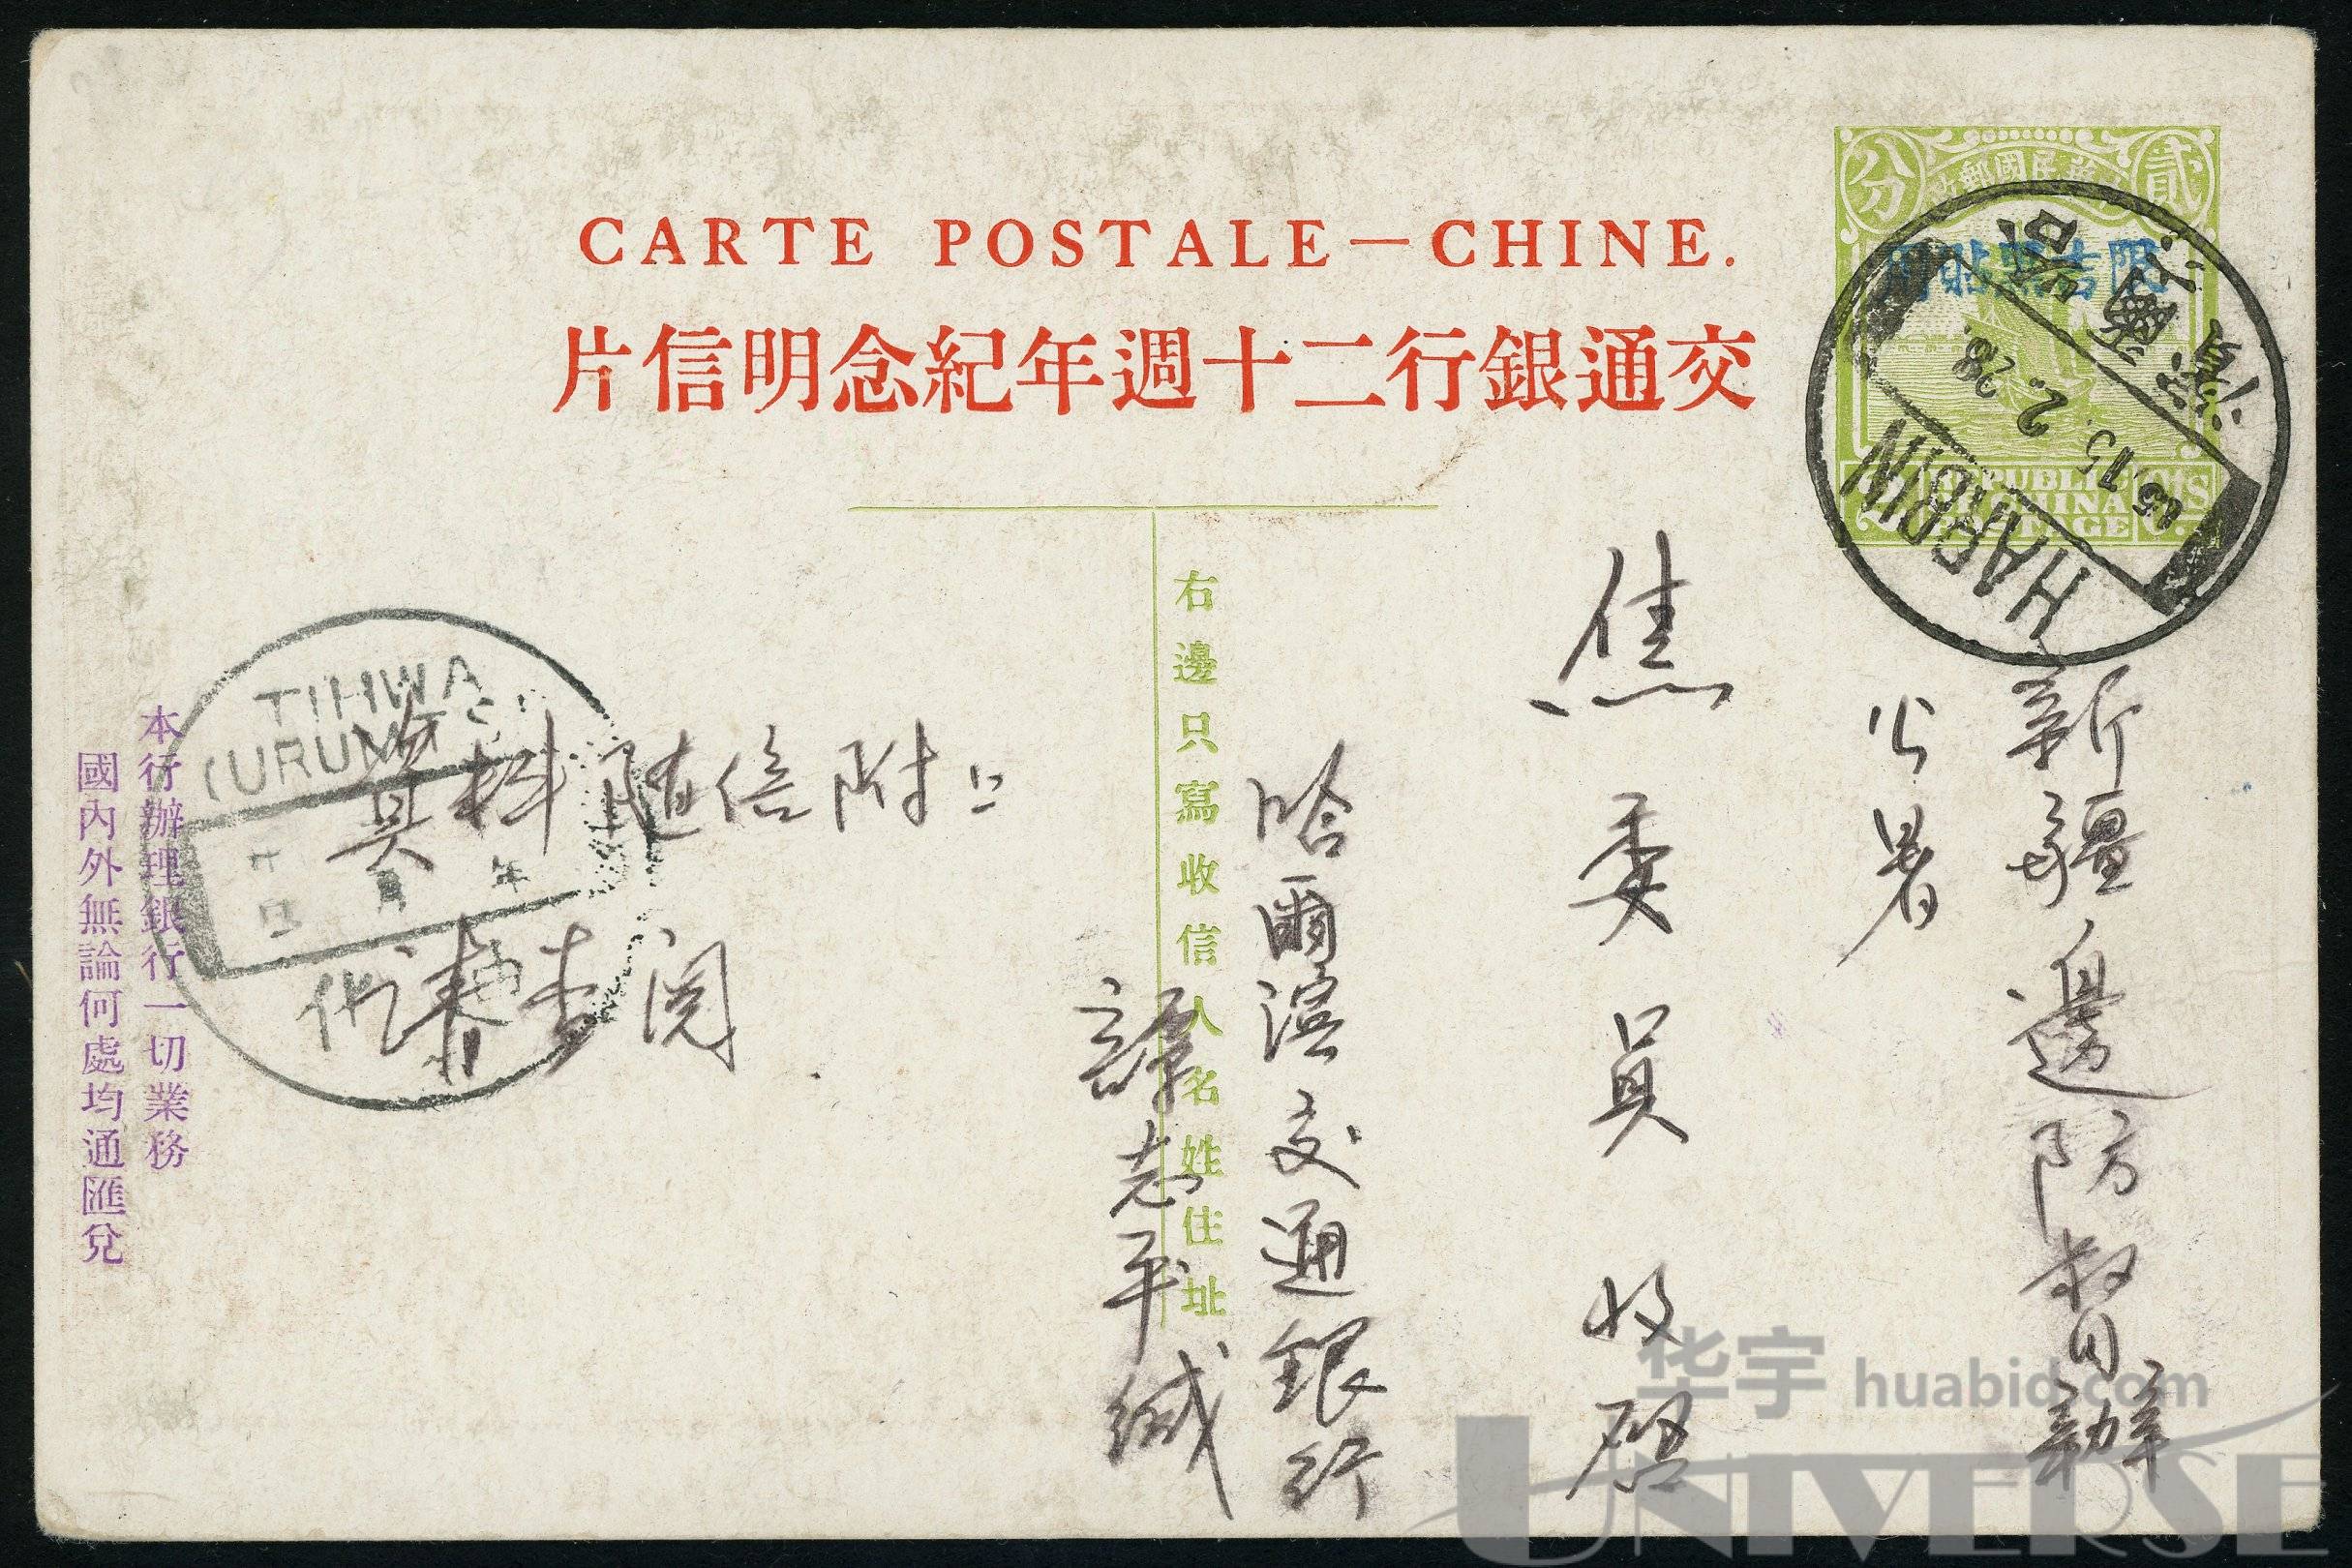 CARTE POSTALE—CHINE.
片信明念紀年週十二行銀通交
分
貳
用貼黑吉限
REPUBLIC
OF CHINA
POSTAGE
CTS
HARBIN
28
2
15
右邊只寫收信人名姓住址
新疆邊防督辦
公署
焦委員 收啓
哈爾濱交通銀行
譚志平缄
資料隨信附上
請查阅
本行辦理銀行一切業務
國內外無論何處均通匯兌
TIHWA
(URUMTSI)
年
月
日
华宇 huabid.com
UNIVERSE